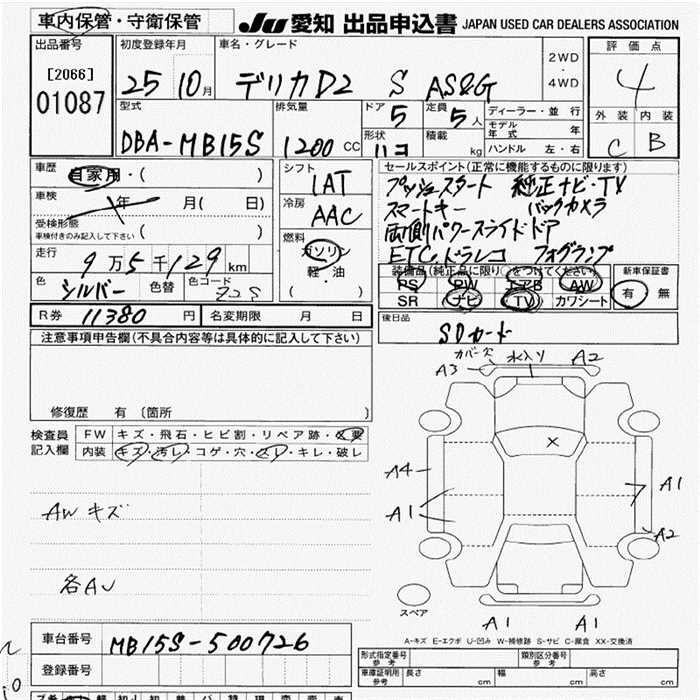 車内保管・守衛保管
JU 愛知 出品申込書 JAPAN USED CAR DEALERS ASSOCIATION
出品番号
[2066]
01087
初度登録年月
25 10月
車名・グレード
デリカD2 S AS&G
2WD
・
4WD
評価点
4
外装 内装
C B
型式
DBA-MB15S
排気量
1200 CC
ドア
5
定員
5人
形状
ハコ
積載
kg
ディーラー・並行
モデル年式 年
ハンドル 左・右
車歴
自家用・( )
車検
年 月( 日)
受検形態
車検付きのみ記入して下さい ( )
走行
9万5千129km
色
シルバー
色替
色コード
Z2S
シフト
IAT
冷房
AAC
燃料
ガソリン
軽・油
( )
セールスポイント(正常に機能するものに限ります)
プッシュスタート 純正ナビ・TV
スマートキー バックカメラ
両側パワースライドドア
ETC、ドラレコ フォグランプ
装備品(純正品に限り〇をつけてください)
PS PW エアB AW
SR ナビ TV カワシート
新車保証書
有 無
R券 11380 円
名変期限 月 日
後日品
SDカード
注意事項申告欄(不具合内容等は具体的に記入して下さい)
修復歴 有 〔箇所 〕
検査員
記入欄
FW キズ・飛石・ヒビ割・リペア跡・交要
内装 キズ・汚レ・コゲ・穴・スレ・キレ・破レ
AWキズ
各AU
カバー欠
水入り
A3
A2
A4
A1
A1
A2
A1
A1
スペア
A-キズ E-エクボ U-凹み W-補修跡 S-サビ C-腐食 XX-交換済
車台番号
MB15S-500726
登録番号
型式指定番号
参考
類別区分番号
参考
車庫証明用
参考
長さ cm 幅 cm 高さ cm